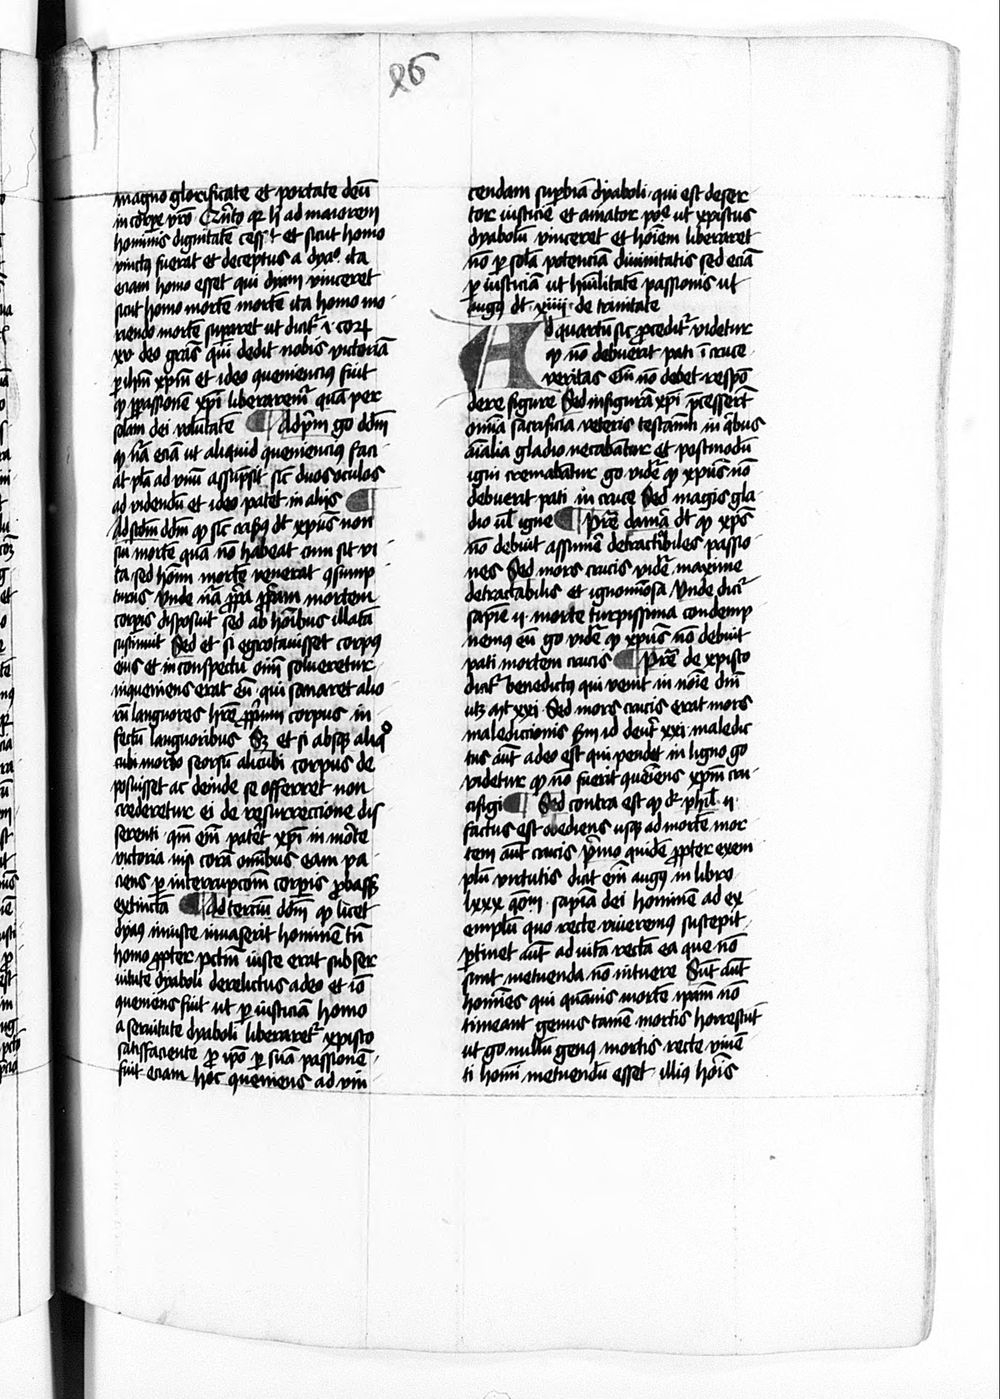 86
magno glorificate et portate deū
in corpe vr̄o Quīto qr h ad maiorem
hominis dignitatē cess̄ t et sicut homo
vinctꝰ fuerat et deceptus a dyaº ita
eciam homo esset qui dyam vinceret
sicut homo mortē mortē ita homo mo
riendo mortē supāret ut dicit᷑ i cor
xv deo grās qui dedit nobis victoriā
p ihm xpm et ideo ꝯueniencius fuit
ꝙ p passionē xpi liberaremr̄ quā per
solam dei volūtatē ¶ Ad pm̄ go dd̄m
ꝙ nā eciā ut aliquid ꝯueniencius faci
at pla ad vnū assūpsit sic duos oculos
ad videndū et ideo patet in aliis ¶
Ad scdm dd̄m ꝙ sic crisꝰ dt xpūs non
sui mortē quā nō habeat cum sit vi
ta sed hoīm mortē venerat ꝯsump
turus Unde nā ppā ppam mortem
corpis disposuit sed ab hoībus illatā
sustinuit Sed et si egrotauisset corpꝰ
eius et in conspectu oīm solueretur
inꝯueniens erat eū qui sanaret alio
rū languores hre ppriuū corpus in
fectū languoribus Sꝫ et si absqꝫ aliqº
cubi morbo seorsū alicubi corpus de
posuisset ac deinde se offerret non
crederetur ei de resurreccione dis
serenti qm̄ em̄ patet xpi in morte
victoria nisi corā omībus eam pa
ciens p interrupcōm corpis pbasꝫ
extincta ¶ Ad terciū dd̄m ꝙ licet
dyaꝰ iniuste inuaserit hominē tn̄
homo ppter pctm̄ iuste erat sub ser
uitute dyaboli derelictus a deo et iō
ꝯueniens fuit ut p iusticiam homo
a seruitute dyaboli liberaret᷑ xpisto
satisfaciente p ipō p suā passionē
fuit eciam hoc ꝯueniens ad vin
cendam supbiā dyaboli qui est deser
tor iusticie et amator poe ut xpistus
dyabolū vinceret et hoīem liberaret
nō p solā potenciam diuinitatis sed eciā
p iusticiam ut hūilitatē passionis ut
augꝰ dt xiiii de trinitate
Ad quartū sic pcedit᷑ videtur
ꝙ nō debuerit pati i cruce
veritas em̄ nō debet respō
dere figure Sed in figurā xpi pcesserūt
omīa sacrificia veteris testamīti in qibus
aīalia gladio necabātur et postmodū
igni cremabātur go vidē ꝙ xpiūs nō
debuerit pati in cruce Sed magis gla
dio ul igne ¶ Prē damā dt ꝙ xpūs
nō debuit assumē detractibiles passio
nes Sed mors crucis vidē maxime
detractabilis et ignomīosa Unde dicit᷑
sapīe ii morte turpissima condemp
nemꝰ eū go vidē ꝙ xpiūs nō debuit
pati mortem crucis ¶ Prē de xpisto
dicit᷑ benedictꝰ qui venit in noīe dnī
utꝫ mt xxi Sed mors crucis erat mors
maledictionis scm̄ id deut xxi maledic
tus aūt a deo est qui pendet in ligno go
videtur ꝙ nō fuerit ꝯueniens xpm cru
cifigi ¶ Sed contra est ꝙ dr phil ii
factus est obediens usqꝫ ad mortē mor
tem aūt crucis primo quidē ppter exem
plū virtutis dicit em̄ augꝰ in libro
lxxx qōm sapīam dei hominē ad ex
emplū quo recte viueremꝰ suscepit
ptinet aūt ad vitā rectā ea que nō
sunt metuenda nō metuere Sūt aūt
homīes qui quāuis mortē ipam nō
timeant genus tamē mortis horrescūt
ut go nullū genꝰ mortis recte viuē
ti homī metuendū esset illiꝰ hoīs